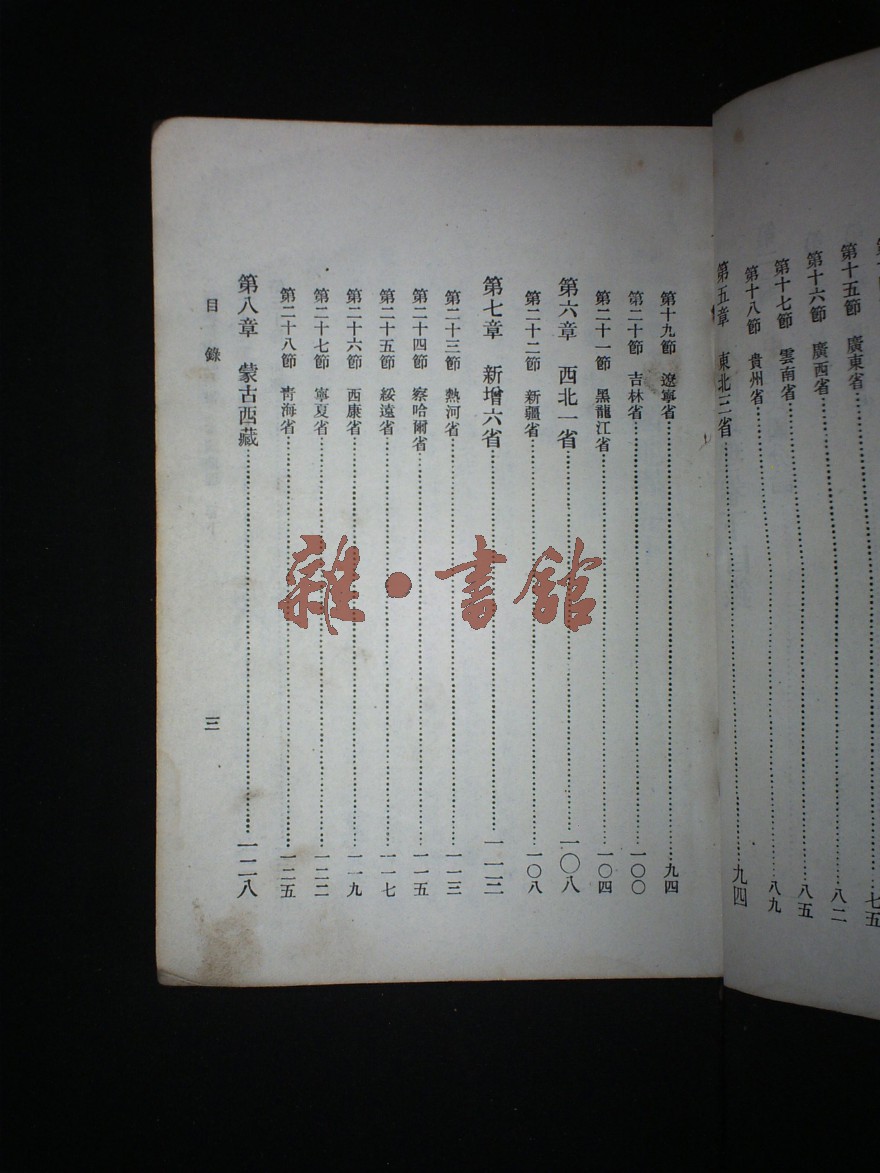 第十五節 廣東省……七五
第十六節 廣西省……八二
第十七節 雲南省……八五
第十八節 貴州省……八九
第五章 東北三省……九四
第十九節 遼寧省……九四
第二十節 吉林省……一〇〇
第二十一節 黑龍江省……一〇四
第六章 西北一省……一〇八
第二十二節 新疆省……一〇八
第七章 新增六省……一一三
第二十三節 熱河省……一一三
第二十四節 察哈爾省……一一五
第二十五節 綏遠省……一一七
第二十六節 西康省……一一九
第二十七節 寧夏省……一二二
第二十八節 靑海省……一二五
第八章 蒙古西藏……一二八
目錄
三
雜·書館